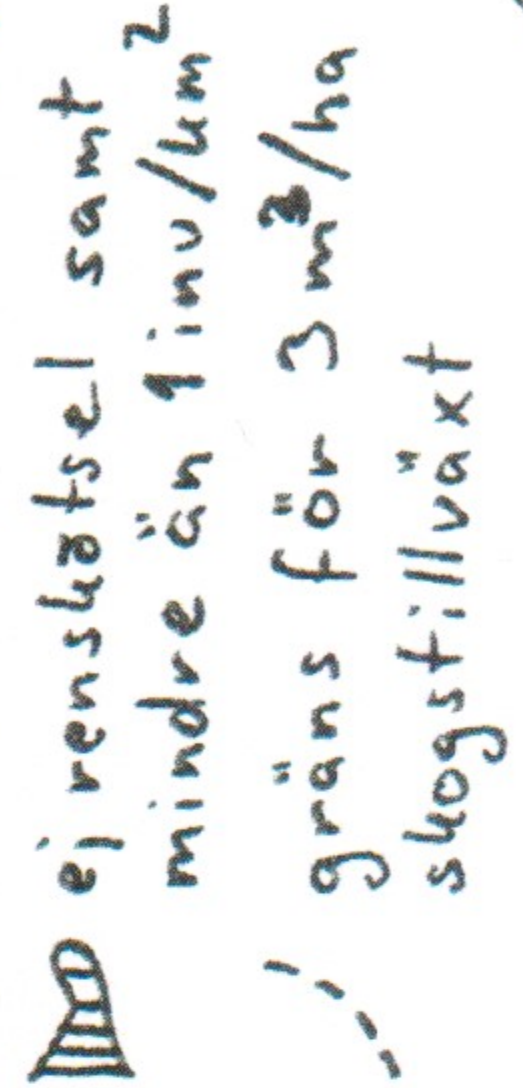 ej renskötsel samt
mindre än 1 inv/km²
gräns för 3 m³/ha
skogstillväxt